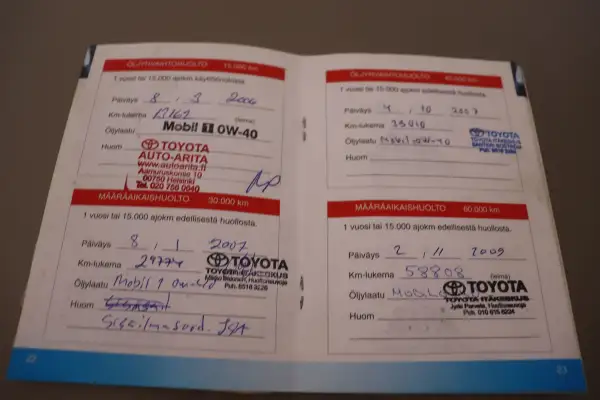 ÖLJYNVAIHTOHUOLTO 15.000 km
1 vuosi tai 15.000 ajokm käyttöönotosta
Päiväys 8 . 3 2006
Km-lukema (leima)
Öljylaatu Mobil 1 0W-40
Huom
TOYOTA
AUTO-ARITA
www.autoarita.fi
Asmuruskonse 10
00750 Helsinki
Tel. 020 758 0040
MÄÄRÄAIKAISHUOLTO 30.000 km
1 vuosi tai 15.000 ajokm edellisestä huollosta.
Päiväys 8 . 1 2007
Km-lukema 29774
TOYOTA
Öljylaatu Mobil 1 0w-40
Huoltoneuvoja
Puh. 6518 3226
Huom
22
ÖLJYNVAIHTOHUOLTO 45.000 km
1 vuosi tai 15.000 ajokm edellisestä huollosta.
Päiväys 4 . 10 2007
Km-lukema
TOYOTA
Öljylaatu Mobil 0W-40
Huom
MÄÄRÄAIKAISHUOLTO 60.000 km
1 vuosi tai 15.000 ajokm edellisestä huollosta.
Päiväys 2 . 11 2009
Km-lukema 58808 (leima)
Öljylaatu
TOYOTA
TOYOTA ITÄKESKUS
Huoltoneuvoja
Puh. 010 615 8224
Huom
23